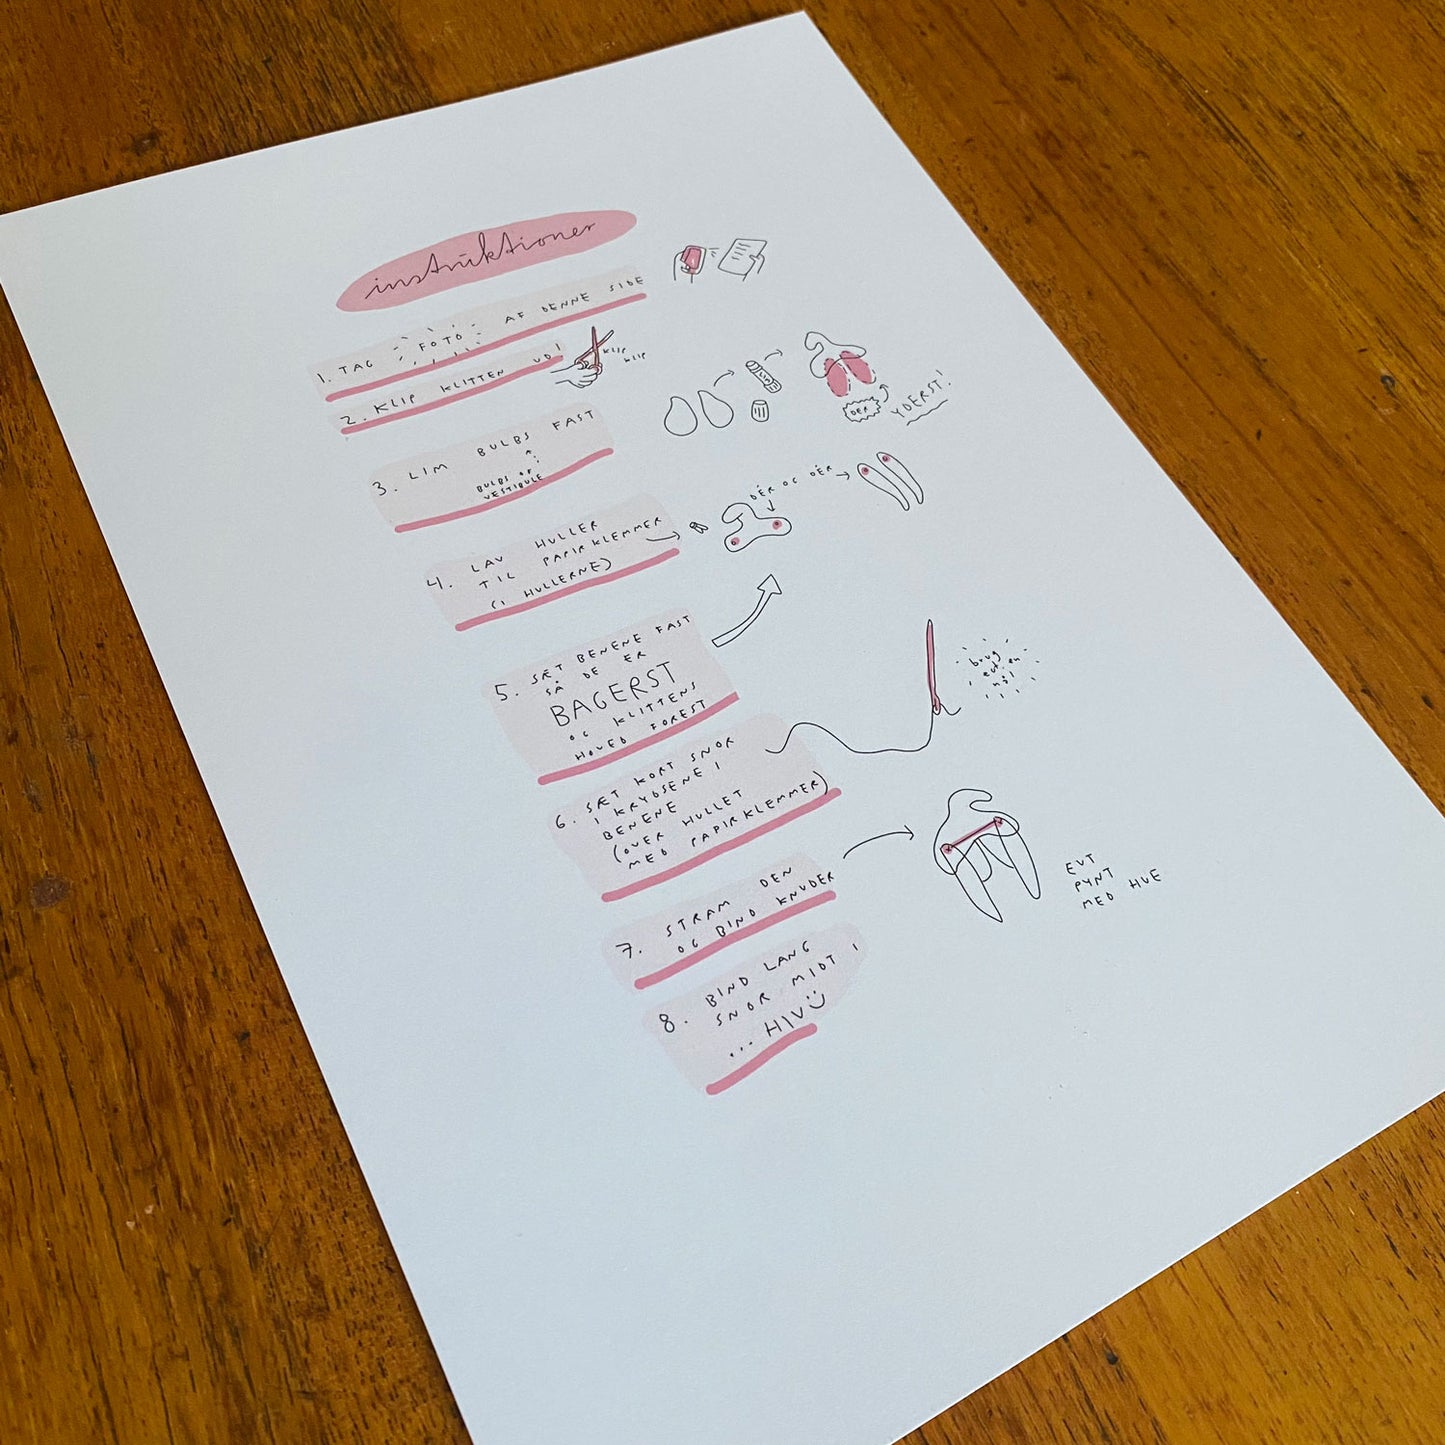 instruktioner
1. TAG FOTO AF DENNE SIDE
2. KLIP KLITTEN UD!
KLIP
KLIP
3. LIM BULBS FAST
BULBS OF
VESTIBULE
LIM
DER
YDERST!
4. LAV HULLER
TIL PAPIRKLEMMER
(I HULLERNE)
DÉR OG DÉR
5. SÆT BENENE FAST
SÅ DE ER
BAGERST
OG KLITTENS
HOVED FOREST
6. SÆT KORT SNOR
I KRYDSENE I
BENENE
(OVER HULLET
MED PAPIRKLEMMER)
brug
evt en
nål
7. STRAM DEN
OG BIND KNUDER
EVT
PYNT
MED HUE
8. BIND LANG
SNOR MIDT I
... HIV